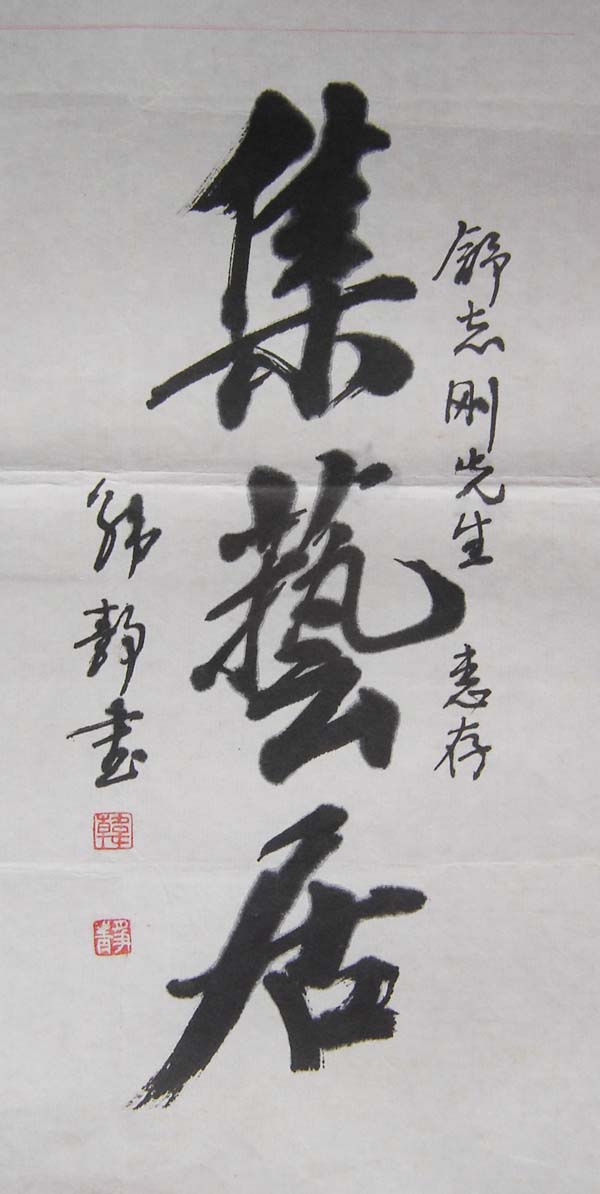 舒志刚先生 惠存
集藝居
韩静書
韓
靜